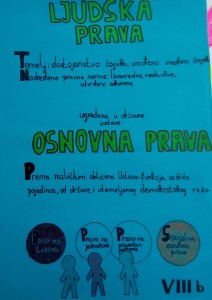 LJUDSKA
PRAVA
Temelj: dostojanstvo čovjeka, urođeno svakom čovjeku
Nadređene pravne norme:
ugrađena u državne
ustave
OSNOVNA PRAVA
Prema različitim oblicima Ustava-funkcija zaštite
pojedinca, od države i utemeljenog demokratskog reda
Pravo na
Pravo na
Socijalna
osnovna
prava
VIII b